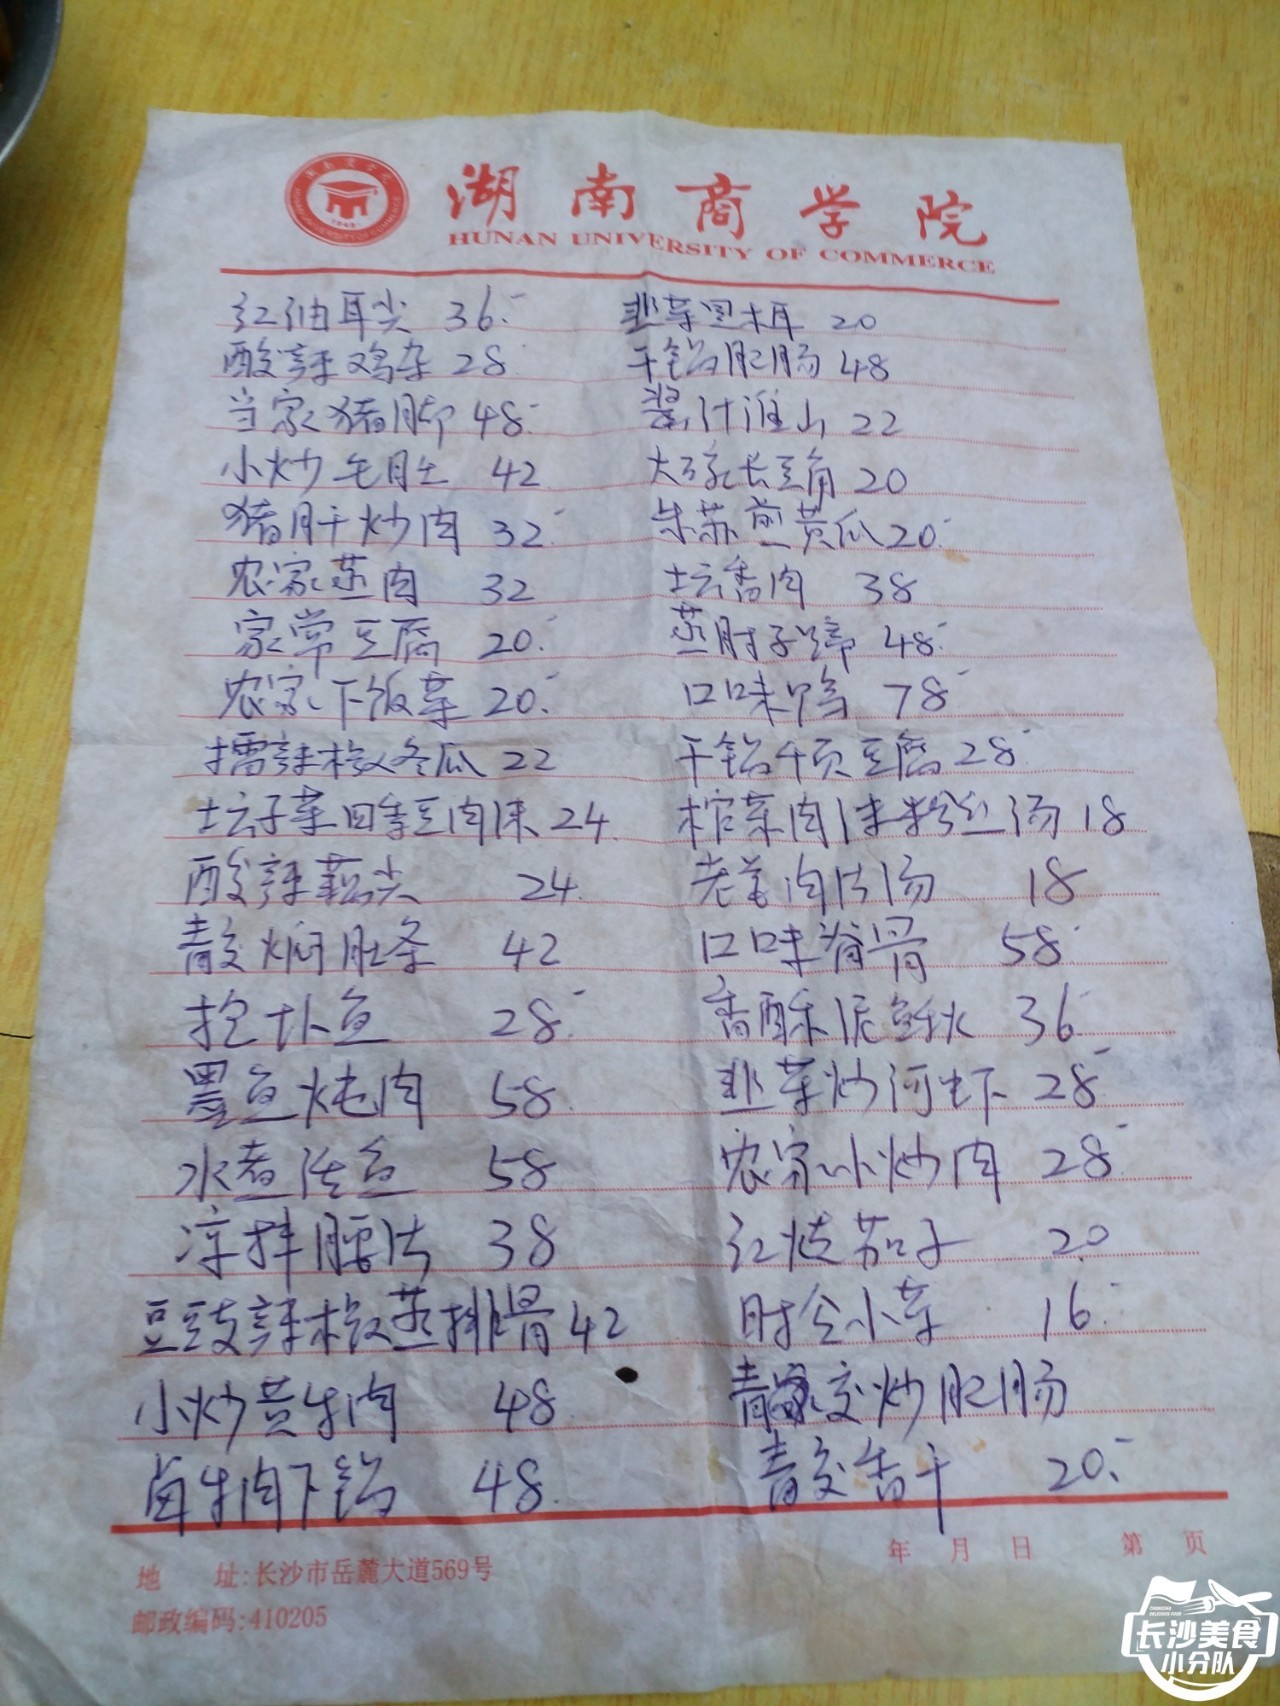 湖南商学院
HUNAN UNIVERSITY OF COMMERCE
红油耳尖 36.- 韭菜黑木耳 20
酸辣鸡杂 28.- 干锅肥肠 48
当家猪脚 48.- 浆汁淮山 22
小炒毛肚 42 大碗长豆角 20
猪肝炒肉 32.- 朱苏煎黄瓜 20.-
农家蒸肉 32 坛香肉 38
家常豆腐 20.- 蒸肘子蹄 48.-
农家下饭菜 20.- 口味鸭 78.-
擂辣椒冬瓜 22 干锅千页豆腐 28.-
坛子菜四季豆肉沫 24 榨菜肉沫粉丝汤 18
酸辣藕尖 24 老姜肉片汤 18
青交焖肚条 42 口味脊骨 58.-
抱扑鱼 28.- 香酥泥鳅 36.-
墨鱼炖肉 58 韭菜炒河虾 28.-
水煮活鱼 58 农家小炒肉 28.-
凉拌腰片 38 红烧茄子 20
豆豉辣椒蒸排骨 42 时令小菜 16.-
小炒黄牛肉 48 青交炒肥肠
卤牛肉下锅 48 青交香干 20.-
年 月 日 第 页
地 址:长沙市岳麓大道569号
邮政编码:410205
长沙美食
小分队